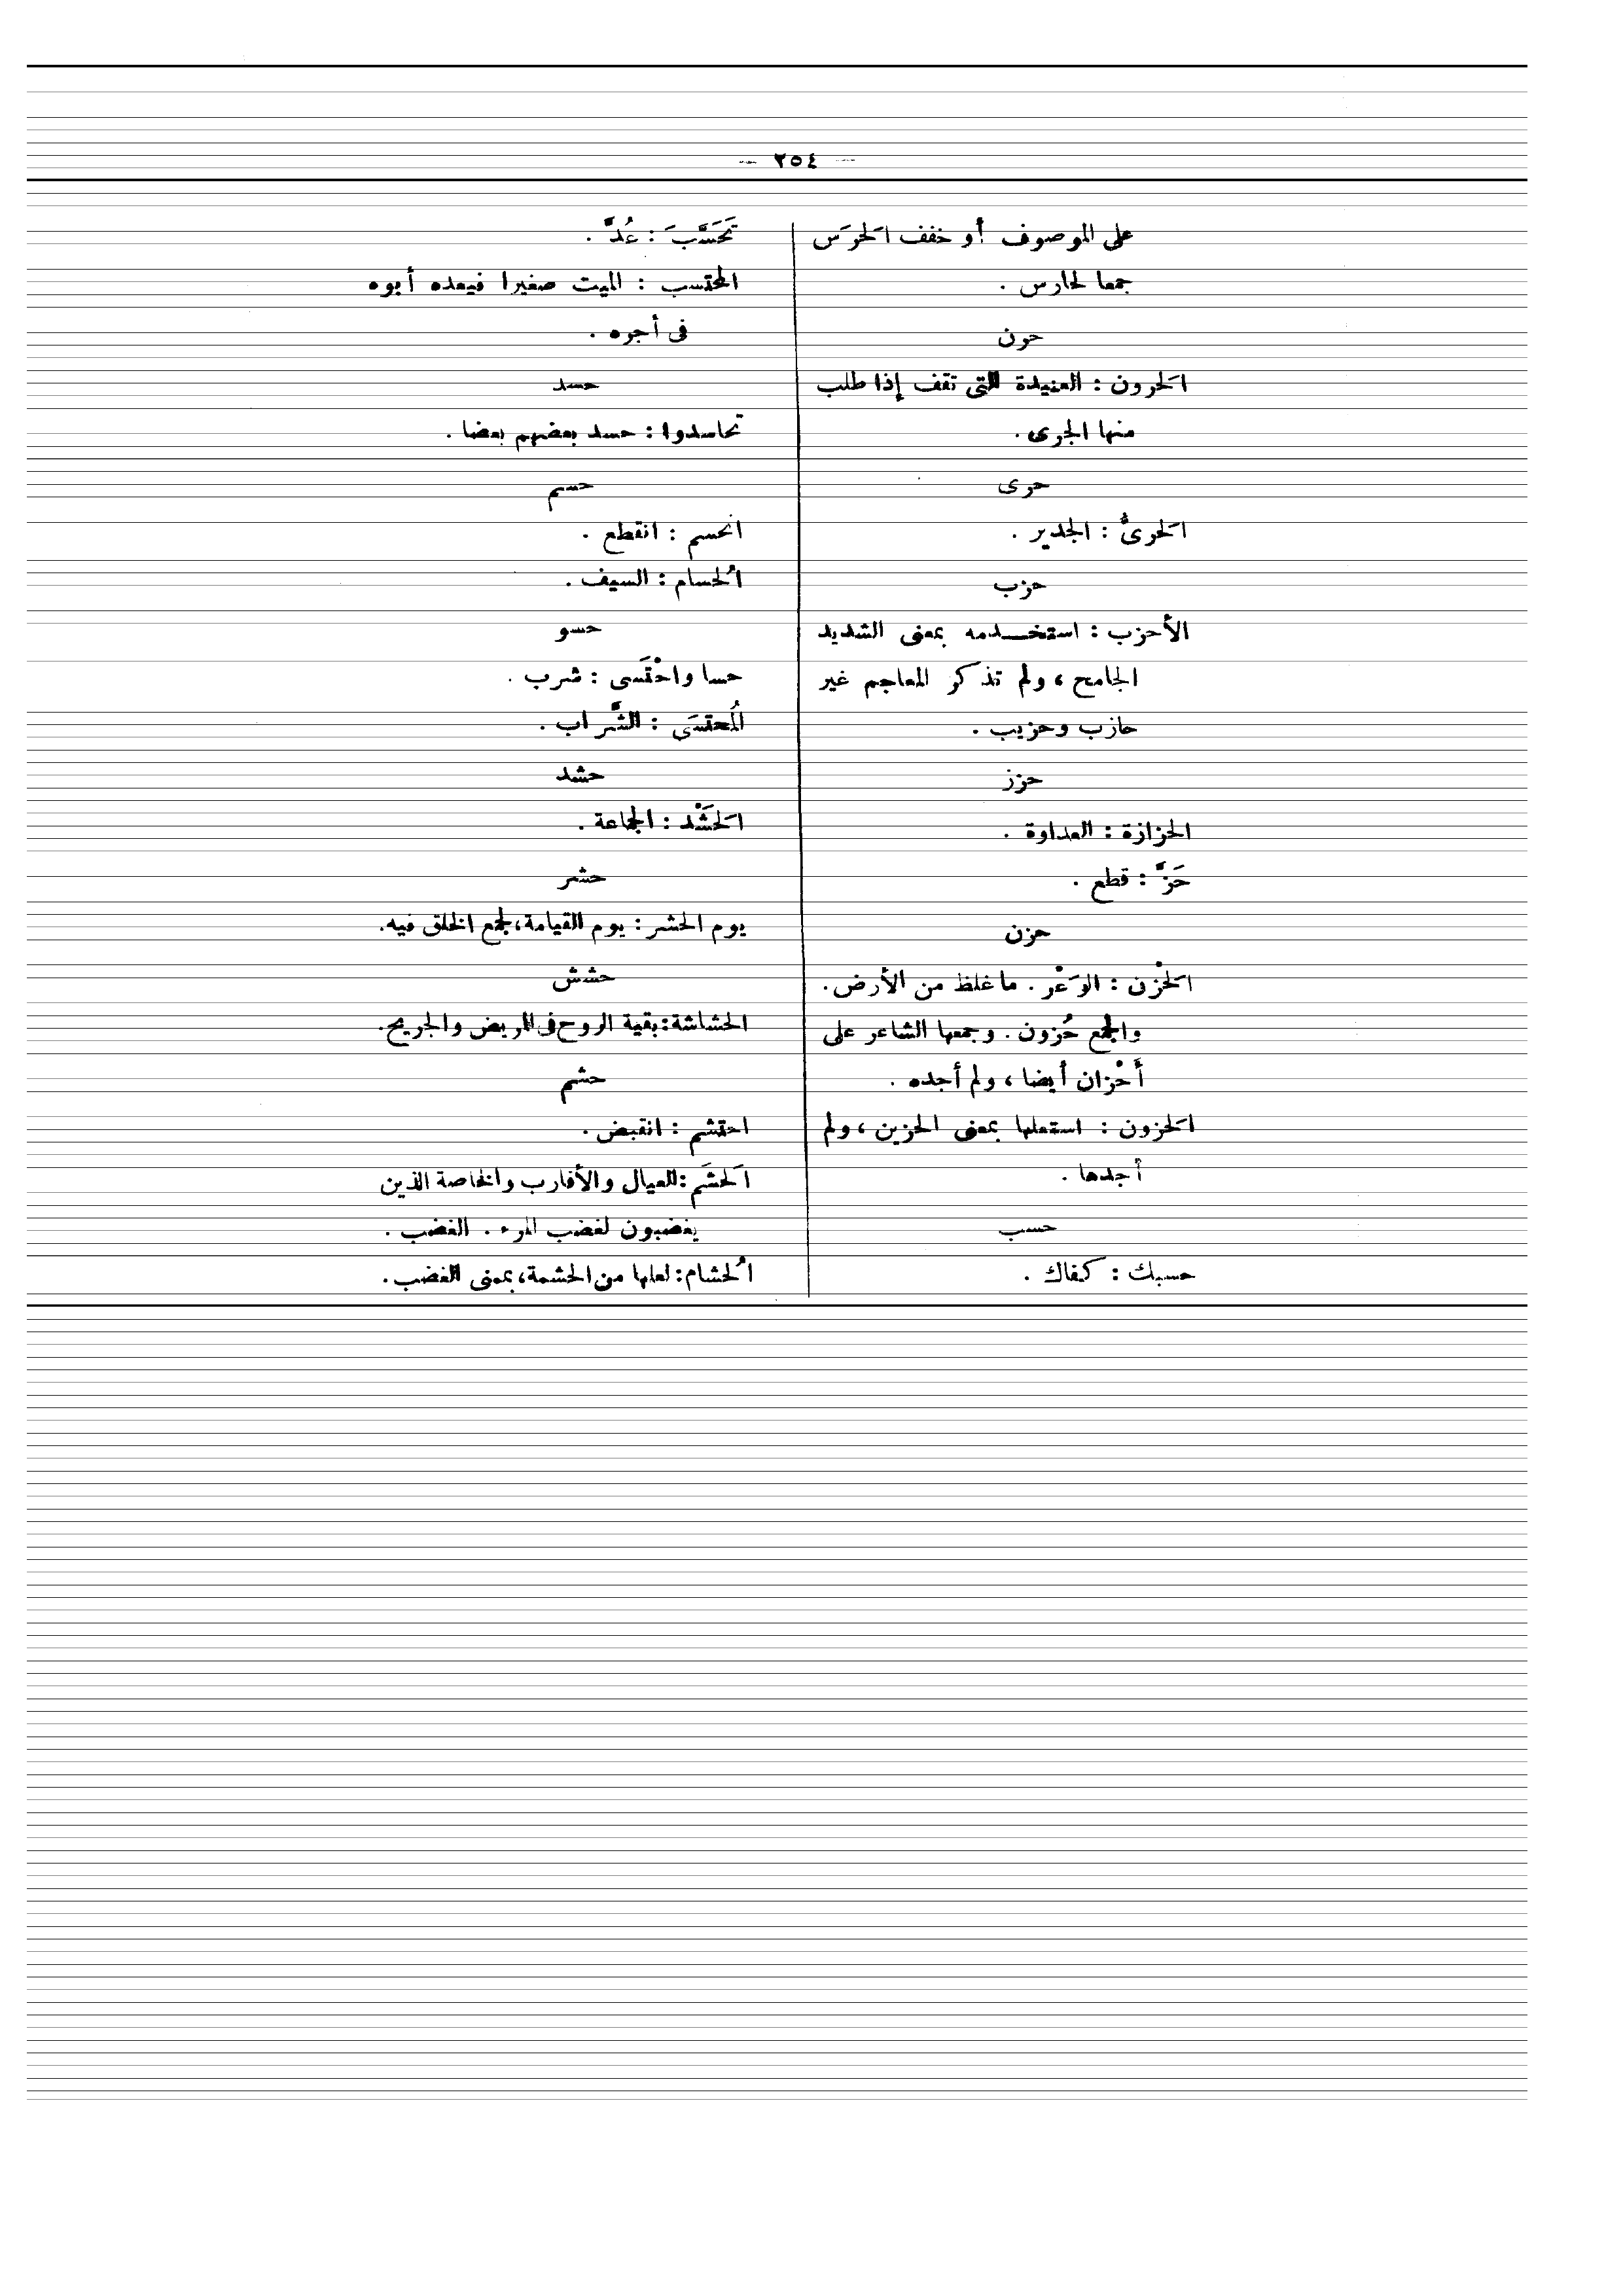 — ٢٥٤ —
على الموصوف أو خفف الحَرَس
جمعا لحارس .
حرن
الَحرون : العنيدة التى تقف إذا طلب
منها الجرى .
حرى
الَحرىُّ : الجدير .
حزب
الأحزب : استخدمه بمعنى الشديد
الجامح ، ولم تذكر المعاجم غير
حازب وحزيب .
حزز
الحزازة : العداوة .
حَزَّ : قطع .
حزن
الَحزْن : الوَعْر . ما غلظ من الأرض .
والجمع حُزون . وجمعها الشاعر على
أَحْزان أيضا ، ولم أجده .
الَحزون : استعملها بمعنى الحزين ، ولم
أجدها .
حسب
حسبك : كفاك .
تَحَسَّبَ : عُدَّ .
المحتسب : الميت صغيرا فيعده أبوه
فى أجره .
حسد
تحاسدوا : حسد بعضهم بعضا .
حسم
انحسم : انقطع .
الُحسام : السيف .
حسو
حسا واحْتَسى : شرب .
المُحتسَى : الشَّراب .
حشد
الَحشْد : الجماعة .
حشر
يوم الحشر : يوم القيامة، لجمع الخلق فيه.
حشش
الحشاشة : بقية الروح فى المريض والجريح.
حشم
احتشم : انقبض .
الَحشَم : العيال والأقارب والخاصة الذين
يغضبون لغضب المرء . الغضب .
الُحشام : لعلها من الحشمة، بمعنى الغضب.